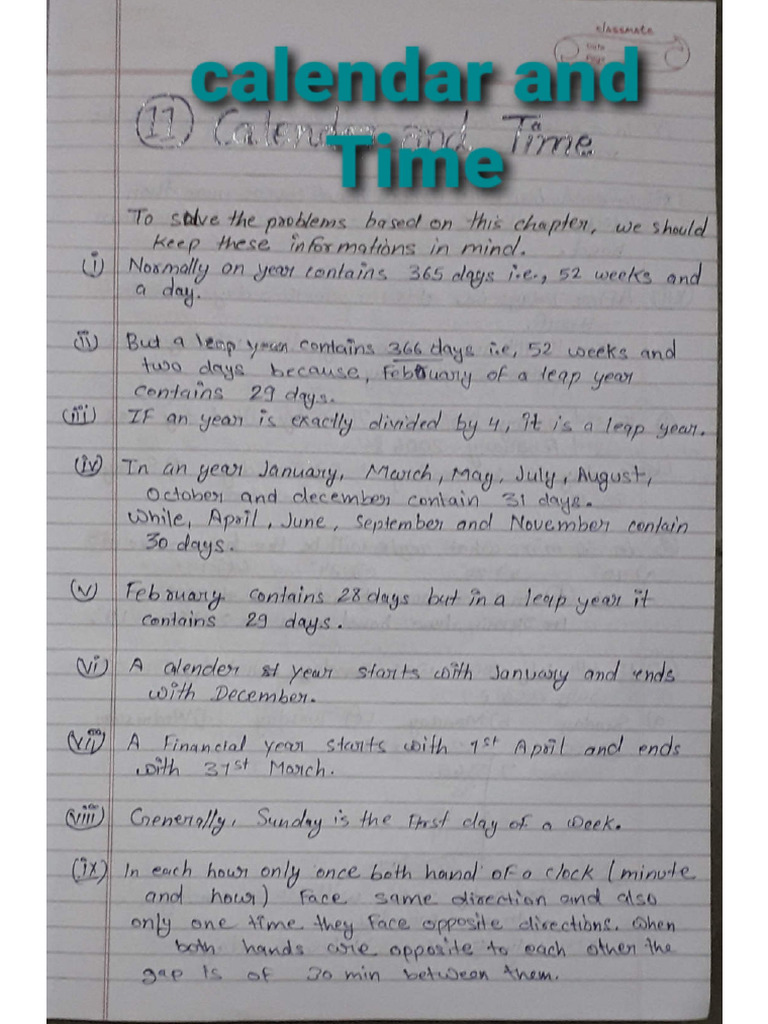 classmate
Date
Page
calendar and
Time
11 Calendar and Time
To solve the problems based on this chapter, we should
keep these informations in mind.
(i) Normally on year contains 365 days i.e., 52 weeks and
a day.
(ii) But a leap year contains 366 days i.e, 52 weeks and
two days because, February of a leap year
contains 29 days.
(iii) IF an year is exactly divided by 4, it is a leap year.
(iv) In an year January, March, May, July, August,
October and december contain 31 days.
While, April, June, September and November contain
30 days.
(v) February contains 28 days but in a leap year it
contains 29 days.
(vi) A alender st year starts with January and ends
with December.
(vii) A Financial year starts with 1st April and ends
with 31st March.
(viii) Generally, Sunday is the first day of a week.
(ix) In each hour only once both hand of a clock (minute
and hour) face same direction and also
only one time they face opposite directions. When
both hands are opposite to each other the
gap is of 30 min between them.